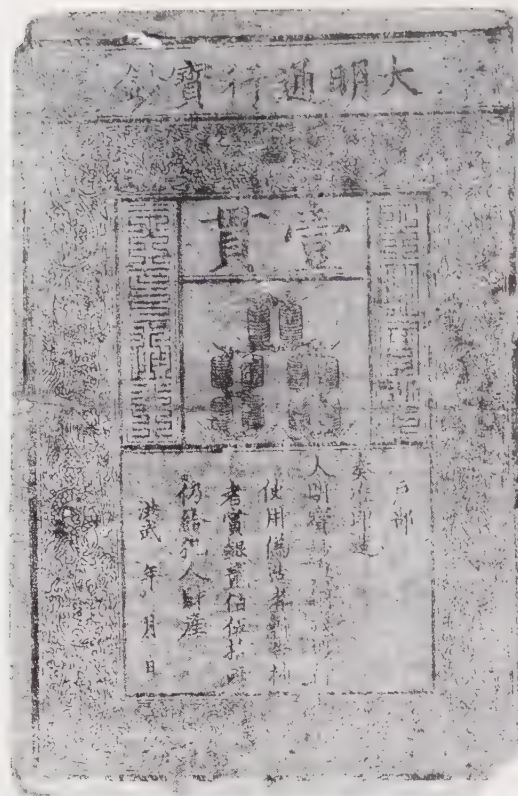 大明通行寶鈔
壹貫
戶部
奏准印造
大明寶鈔
使用偽造者斬告捕
者賞銀貳佰伍拾兩
仍給犯人財產
洪武 年 月 日